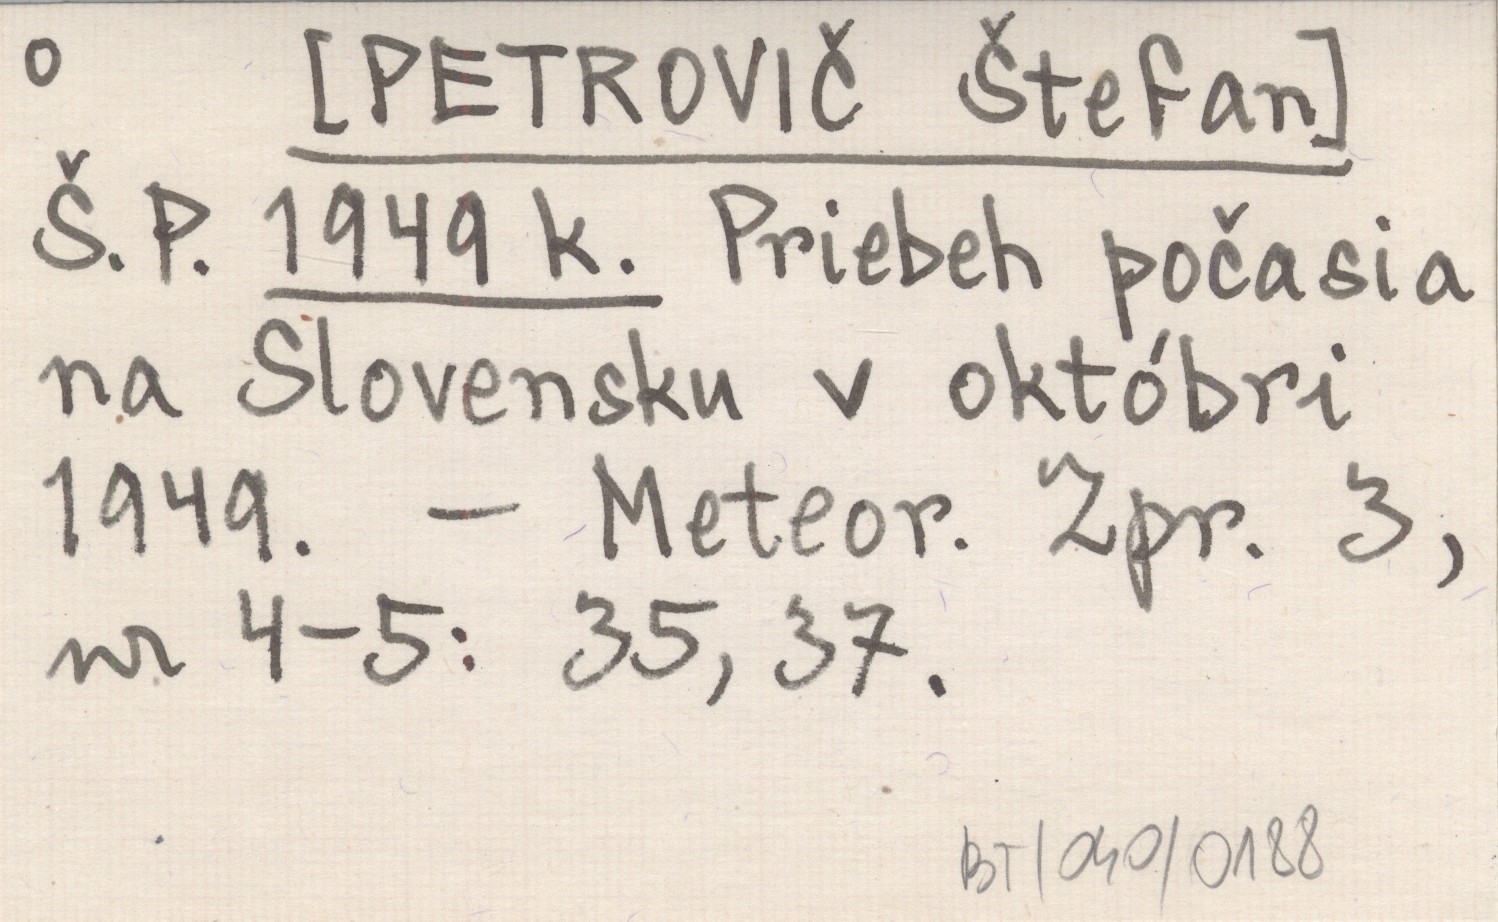 o [PETROVIČ Štefan]
Š.P. 1949 k. Priebeh počasia
na Slovensku v októbri
1949. – Meteor. Zpr. 3,
nr 4–5: 35, 37.
BT/040/0188